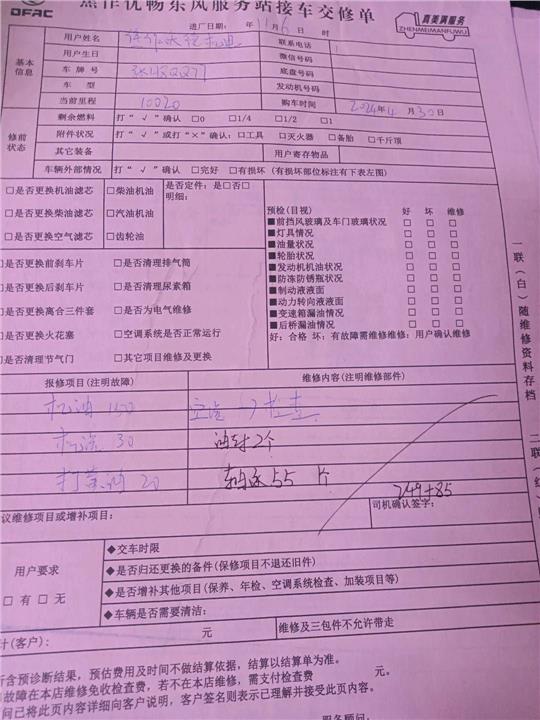 焦作优畅东风服务站接车交修单
DFAC
真美满服务
ZHENMEIMANFUWU
进厂日期: 年 11 月 6 日 时
基本信息
用户姓名
联系电话
用户生日
微信号码
车 牌 号
底盘号码
车 型
发动机号码
当前里程 10020 购车时间 2024年4月30日
修前状态
剩余燃料 打"√"确认 □0 □1/4 □1/2 □1
附件状况 打"√"或打"×"确认: □工具 □灭火器 □备胎 □千斤顶
其它装备 用户寄存物品
车辆外部情况 打"√"确认 □完好 □有损坏 (有损坏部位标注有下表左图)
□是否更换机油滤芯 □柴油机油 是否定件: 是□否□
明细:
□是否更换柴油滤芯 □汽油机油
□是否更换空气滤芯 □齿轮油
预检(目视) 好 坏 维修
■前挡风玻璃及车门玻璃状况 □ □ □
■灯具情况 □ □ □
■油量状况 □ □ □
■轮胎状况 □ □ □
■发动机机油状况 □ □ □
■防冻防锈瓶状况 □ □ □
■制动液液面 □ □ □
■动力转向液液面 □ □ □
■变速箱漏油情况 □ □ □
■后桥漏油情况 □ □ □
好: 合格 坏: 有故障需维修维修: 用户确认维修
□是否更换前刹车片 □是否清理排气筒
□是否更换后刹车片 □是否清理尿素箱
□是否更换离合三件套 □是否为电气维修
□是否更换火花塞 □空调系统是否正常运行
□是否清理节气门 □其它项目维修及更换
报修项目(注明故障) 维修内容(注明维修部件)
机油 150 空滤 → 检查
机滤 30 油封2个
打黄油 20 55 个
249+85
议维修项目或增补项目: 司机确认签字:
用户要求
□ 有 □ 无
◆交车时限
◆是否归还更换的备件(保修项目不退还旧件)
◆是否增补其他项目(保养、年检、空调系统检查、加装项目等)
◆车辆是否需要清洁:
计(客户): 元 维修及三包件不允许带走
所含预诊断结果, 预估费用及时间不做结算依据, 结算以结算单为准。
如故障在本店维修免收检查费, 若不在本店维修, 需支付检查费 元。
问已将此页内容详细向客户说明, 客户签名则表示已理解并接受此页内容。
服务顾问:
一联(白)随维修资料存档
二联(红)